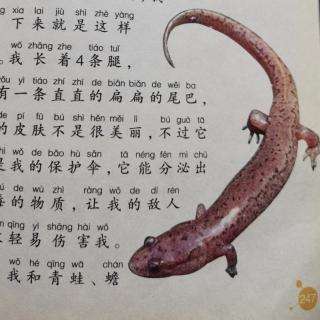 g xia lai jiù shì zhè yàng
下来就是这样
wǒ zhǎng zhe tiáo tuǐ
。我长着4条腿，
yǒu yì tiáo zhí zhí de biǎn biǎn de wěi ba
有一条直直的扁扁的尾巴，
de pí fū bú shì hěn měi lì bú guò tā
的皮肤不是很美丽，不过它
shì wǒ de bǎo hù sǎn tā néng fēn mì chū
是我的保护伞，它能分泌出
dú de wù zhì ràng wǒ de dí rén
毒的物质，让我的敌人
qīng yì shāng hài wǒ
轻易伤害我。
wǒ hé qīng wā chán
我和青蛙、蟾
247